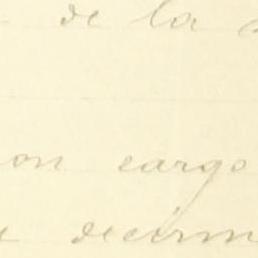 de la
on cargo
decirm